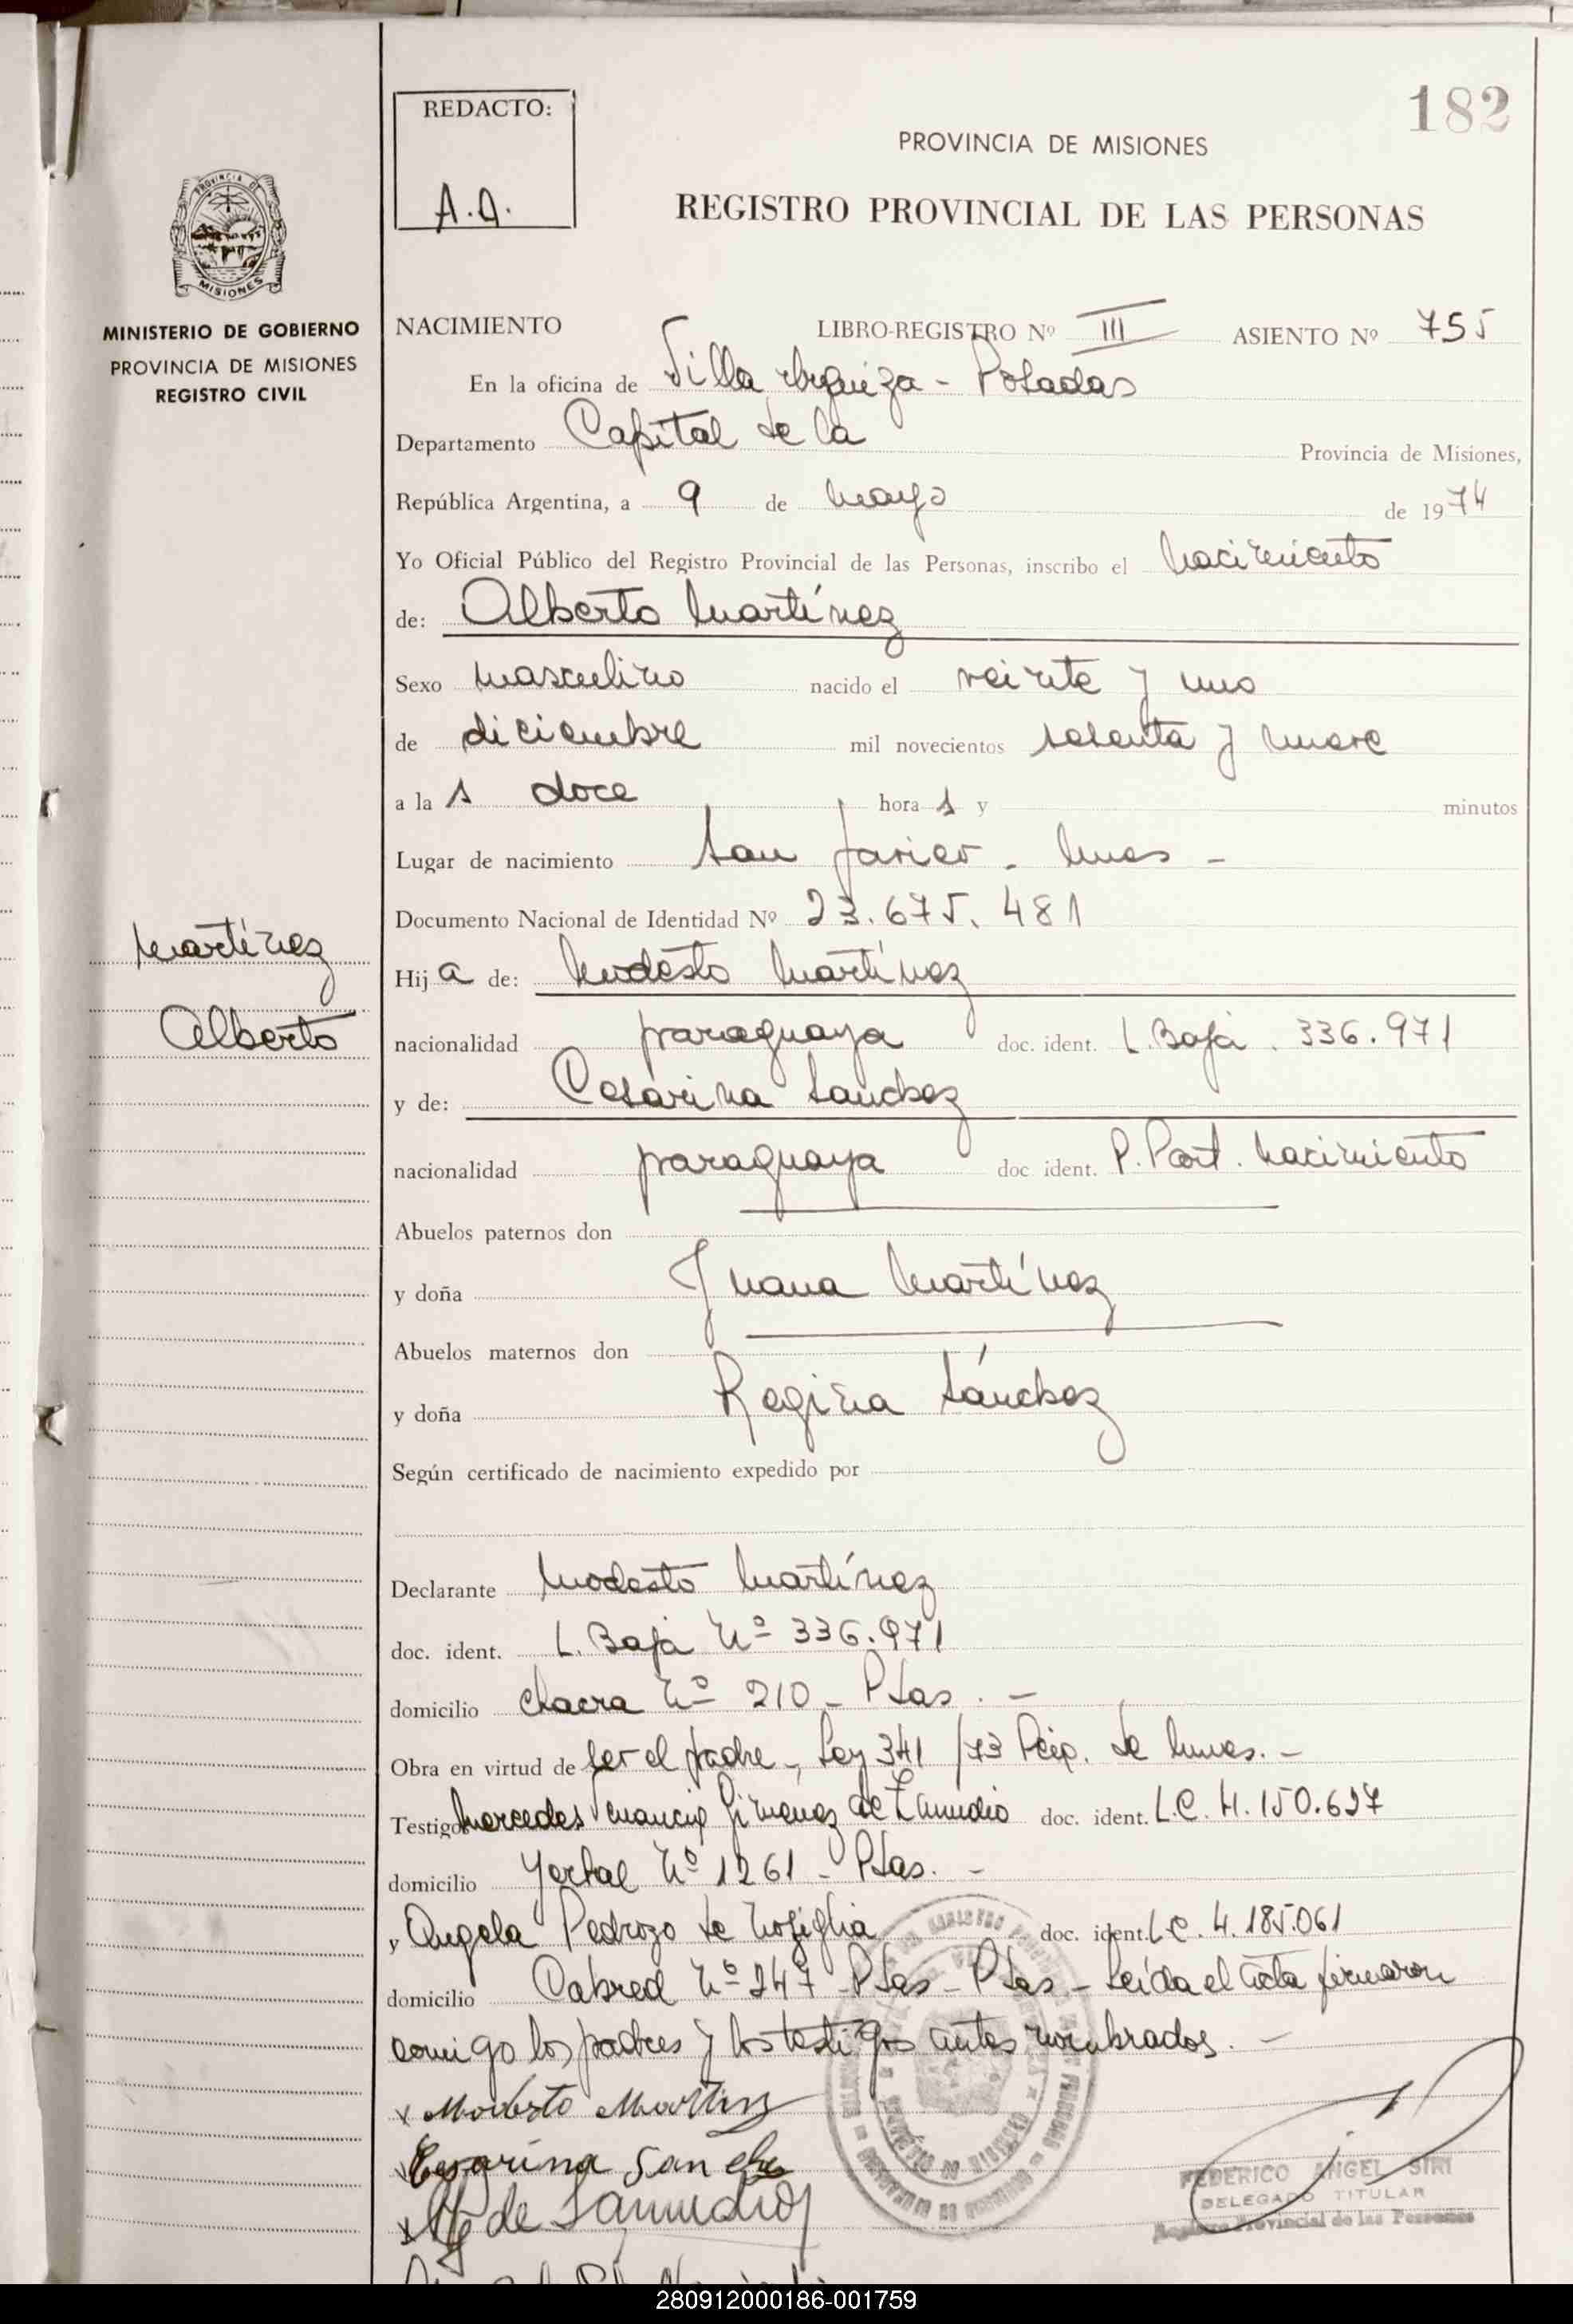 182
REDACTO:
A.A.
PROVINCIA DE MISIONES
REGISTRO PROVINCIAL DE LAS PERSONAS
PROVINCIA DE
MISIONES
MINISTERIO DE GOBIERNO
PROVINCIA DE MISIONES
REGISTRO CIVIL
NACIMIENTO LIBRO-REGISTRO Nº III ASIENTO Nº 755
En la oficina de Villa Urquiza - Posadas
Departamento Capital de la Provincia de Misiones,
República Argentina, a 9 de mayo de 1974
Yo Oficial Público del Registro Provincial de las Personas, inscribo el nacimiento
de: Alberto Martínez
Sexo masculino nacido el veinte y uno
de diciembre mil novecientos sesenta y nueve
a la s doce hora s y minutos
Lugar de nacimiento San Javier - Mnes -
Documento Nacional de Identidad Nº 23.675.481
Martínez
Alberto
Hij a de: Modesto Martínez
nacionalidad paraguaya doc. ident. L. Baja. 336.971
y de: Cesarina Sanchez
nacionalidad paraguaya doc. ident. P. Part. nacimiento
Abuelos paternos don
y doña Juana Martínez
Abuelos maternos don
y doña Regina Sánchez
Según certificado de nacimiento expedido por
Declarante Modesto Martínez
doc. ident. L. Baja Nº 336.971
domicilio chacra Nº 210 - Psas. -
Obra en virtud de ser el padre - Ley 341/73 Pcip. de Mnes. -
Testigo Mercedes Giménez de Zamudio doc. ident. L.C. 4.150.627
domicilio Yerbal Nº 1261 - Psas. -
y Angela Pedrozo de Nosiglia doc. ident. L.C. 4.185.061
domicilio Cabred Nº 247 Psas - Psas - Leída el acta firmaron
comigo los padres y los testigos antes nombrados. -
x Modesto Martinz
x Cesarina Sanche
x de Zamudio
FEDERICO ANGEL SIRI
DELEGADO TITULAR
Registro Provincial de las Personas
280912000186-001759